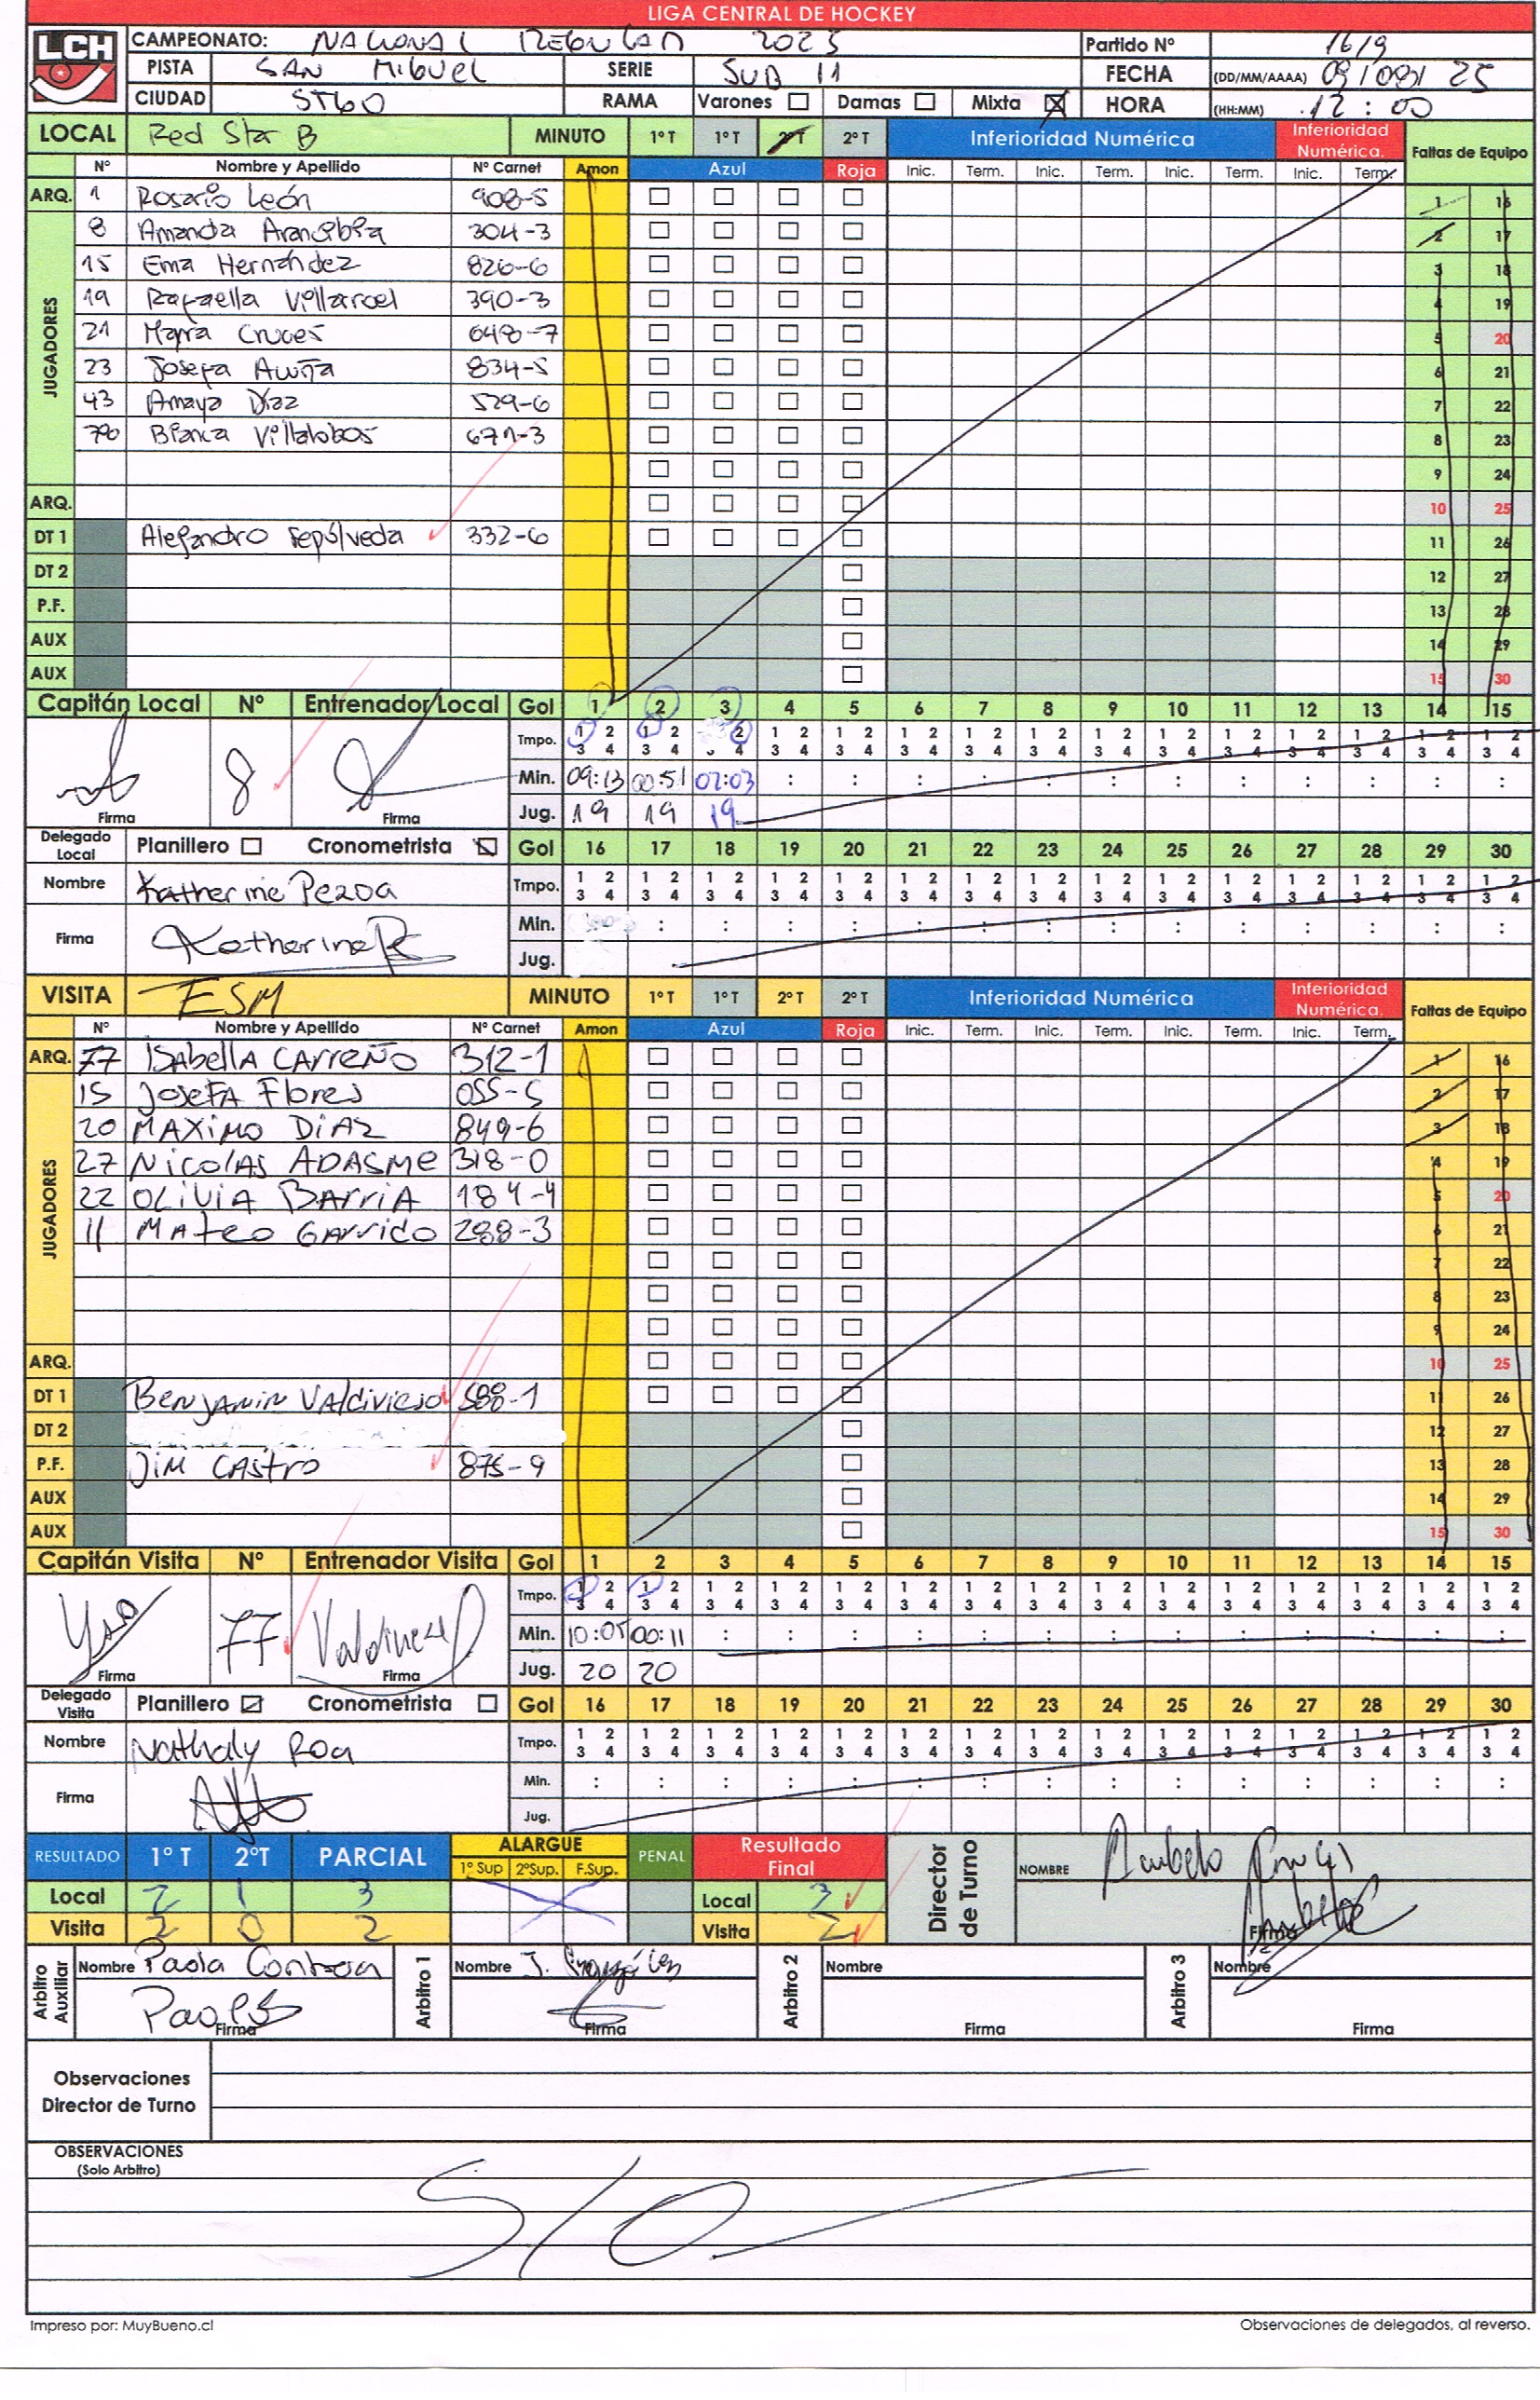 LIGA CENTRAL DE HOCKEY
LCH
CAMPEONATO: NACIONAL REGULAR 2025 Partido Nº 16/9
PISTA SAN MIGUEL SERIE SUB 11 FECHA (DD/MM/AAAA) 09/09/25
CIUDAD STGO RAMA Varones Damas Mixta HORA (HH:MM) 12:00
LOCAL Red Star B MINUTO 1º T 1º T 2º T 2º T Inferioridad Numérica Inferioridad Numérica. Faltas de Equipo
Nº Nombre y Apellido Nº Carnet Amon Azul Roja Inic. Term. Inic. Term. Inic. Term. Inic. Term.
ARQ. 1 Rosario León 908-5 1 16
JUGADORES
8 Amanda Arancibia 304-3 2 17
15 Ema Hernández 826-6 3 18
19 Rafaella Villaroel 390-3 4 19
21 Mayra Cruces 648-7 5 20
23 Josefa Acuña 834-5 6 21
43 Amaya Díaz 529-6 7 22
790 Bianca Villalobos 671-3 8 23
9 24
ARQ. 10 25
DT 1 Alejandro Sepúlveda 332-6 11 26
DT 2 12 27
P.F. 13 28
AUX 14 29
AUX 15 30
Capitán Local Nº Entrenador Local Gol 1 2 3 4 5 6 7 8 9 10 11 12 13 14 15
Tmpo. 1 2 3 4 1 2 3 4 2 4 1 2 3 4 1 2 3 4 1 2 3 4 1 2 3 4 1 2 3 4 1 2 3 4 1 2 3 4 1 2 3 4 1 2 3 4 1 2 3 4 1 2 3 4 1 2 3 4
8 Min. 09:13 00:51 02:03 : : : : : : : : : : : :
Firma Firma Jug. 19 19 19
Delegado Local Planillero Cronometrista Gol 16 17 18 19 20 21 22 23 24 25 26 27 28 29 30
Nombre Katherine Pezoa Tmpo. 1 2 3 4 1 2 3 4 1 2 3 4 1 2 3 4 1 2 3 4 1 2 3 4 1 2 3 4 1 2 3 4 1 2 3 4 1 2 3 4 1 2 3 4 1 2 3 4 1 2 3 4 1 2 3 4 1 2 3 4
Firma Katherine P Min. : : : : : : : : : : : : : :
Jug.
VISITA ESM MINUTO 1º T 1º T 2º T 2º T Inferioridad Numérica Inferioridad Numérica. Faltas de Equipo
Nº Nombre y Apellido Nº Carnet Amon Azul Roja Inic. Term. Inic. Term. Inic. Term. Inic. Term.
ARQ. 77 ISAbellA CARREÑO 312-1 1 16
JUGADORES
15 JoseFA Flores 055-5 2 17
20 MAXIMO DIAZ 849-6 3 18
27 NicolAS ADASME 318-0 4 19
22 OLIVIA BARRIA 184-4 5 20
11 MAteo GArrido 288-3 6 21
7 22
8 23
9 24
ARQ. 10 25
DT 1 BenjAMin VAldivieso 588-1 11 26
DT 2 12 27
P.F. JIM CAStro 875-9 13 28
AUX 14 29
AUX 15 30
Capitán Visita Nº Entrenador Visita Gol 1 2 3 4 5 6 7 8 9 10 11 12 13 14 15
Tmpo. 1 2 3 4 1 2 3 4 1 2 3 4 1 2 3 4 1 2 3 4 1 2 3 4 1 2 3 4 1 2 3 4 1 2 3 4 1 2 3 4 1 2 3 4 1 2 3 4 1 2 3 4 1 2 3 4 1 2 3 4
77 Min. 10:05 00:11 : : : : : : : : : : : : :
Firma Firma Jug. 20 20
Delegado Visita Planillero Cronometrista Gol 16 17 18 19 20 21 22 23 24 25 26 27 28 29 30
Nombre Nathaly Roa Tmpo. 1 2 3 4 1 2 3 4 1 2 3 4 1 2 3 4 1 2 3 4 1 2 3 4 1 2 3 4 1 2 3 4 1 2 3 4 1 2 3 4 1 2 3 4 1 2 3 4 1 2 3 4 1 2 3 4 1 2 3 4
Firma Min. : : : : : : : : : : : : : : :
Jug.
RESULTADO 1º T 2ºT PARCIAL ALARGUE 1º Sup 2ºSup. F.Sup. PENAL Resultado Final Director de Turno NOMBRE
Local 2 1 3 Local 3
Visita 2 0 2 Visita 2 Firma
Arbitro Auxiliar Nombre Paola Contreras Arbitro 1 Nombre J. González Arbitro 2 Nombre Arbitro 3 Nombre
Firma Firma Firma Firma
Observaciones
Director de Turno
OBSERVACIONES
(Solo Arbitro)
S/O
Impreso por: MuyBueno.cl Observaciones de delegados, al reverso.